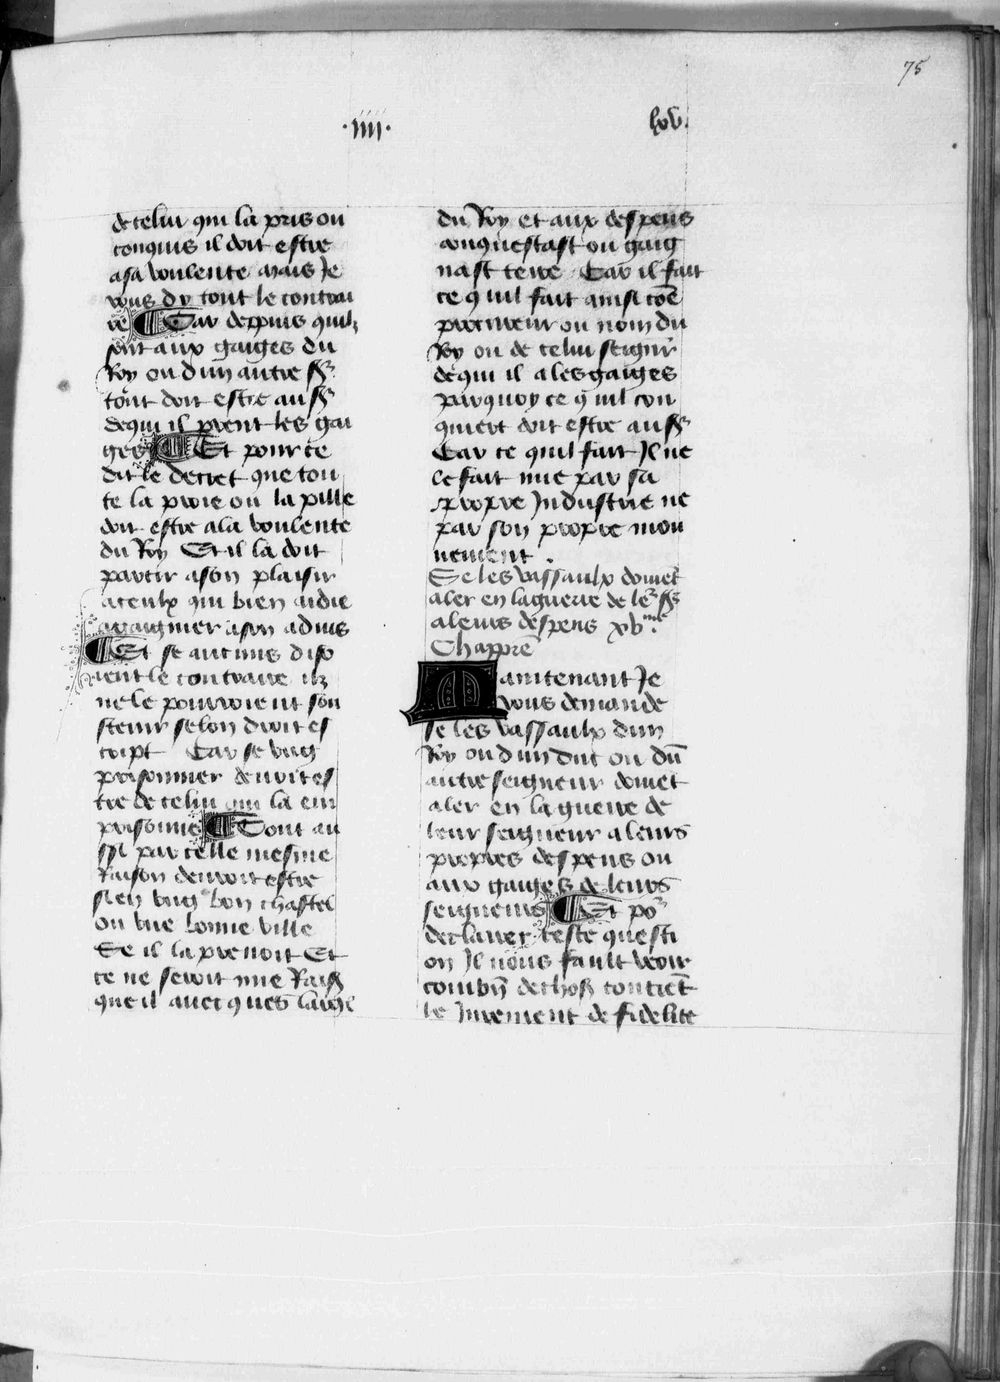 75
.iiii. lxv.
de celui qui la pris ou
conquis il doit estre
a sa voulente mais Je
vous dy tout le contrai
re ¶ Car depuis quilz
sont aux gaiges du
Roy ou dun autre sr̃
tout doit estre au sr̃
de qui il prent les gai
ges ¶ Et pour ce
dit le decret que tou
te la proie ou la pille
doit estre a la voulente
du Roy Et il la doit
partir a son plaisir
a ceulx qui bien aidie
a gaignier a son aduis
¶ Et se aucuns diso
ient le contraire ilz
ne le pourroient sou
stenir selon droit es
cript Car se vng
prisonnier deuoit es
tre de celui qui la en
prisonne ¶ Tout au
ssi par celle mesme
Raison deuroit estre
sien vng bon chastel
ou vne bonne ville
Se il la prenoit Et
ce ne seroit mie Raisõ
que il auecques largẽt
du Roy et aux despens
conquestast ou gaig
nast terre Car il fait
ce quil fait ainsi cõe
procureur ou nom du
Roy ou de celui seignr̃
de qui il a les gaiges
par quoy ce quil con
quiert doit estre au sr̃
Car ce quil fait Il ne
le fait mie par sa
propre Industrie ne
par son propre mou
uement .
Se les vassaulx doiuẽt
aler en la guerre de le.rs sr̃s
a leurs despens xv.me
Chappr̃e
Maintenant Je
vous demande
se les vassaulx dun
Roy ou dun duc ou dũ
autre seigneur doiuẽt
aler en la guerre de
leur seigneur a leurs
propres despens ou
aux gaiges de leurs
seigneurs ¶ Et po.r
declairer ceste questi
on Il nous fault veoir
combiẽ de choses contiẽt
le Jurement de fidelite